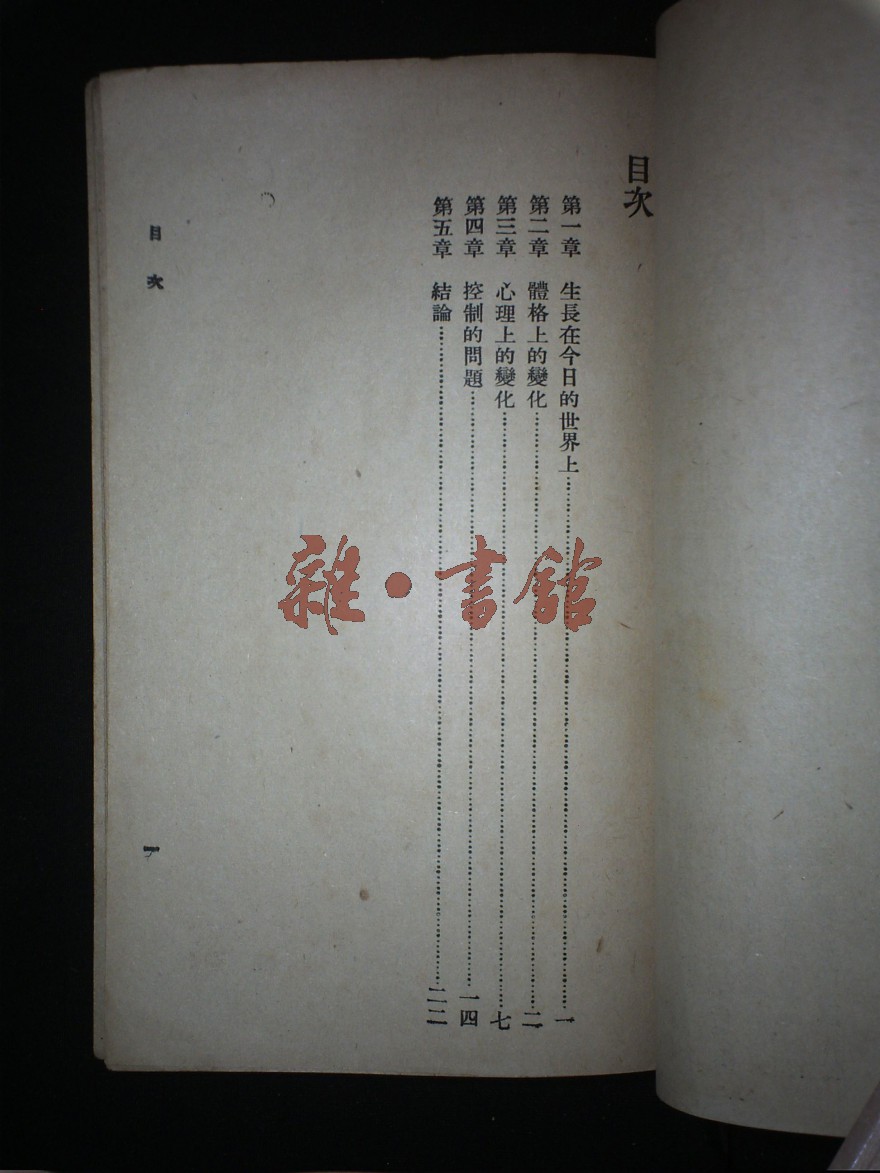 目次
第一章　生長在今日的世界上……一
第二章　體格上的變化……二
第三章　心理上的變化……七
第四章　控制的問題……一四
第五章　結論……二二
目次
一
雜·書館